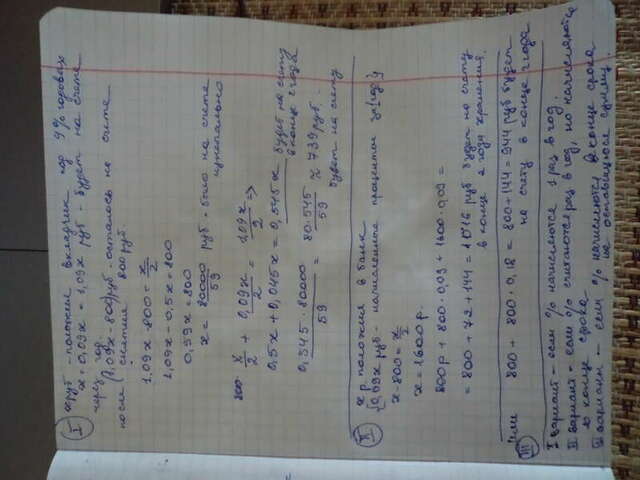 I х руб - положил вкладчик под 9% годовых
х + 0,09х = 1,09х руб - будет на счете
через год
после (1,09х - 800) руб - осталось на счете
снятия 800 руб.
1,09х - 800 = х/2
1,09х - 0,5х = 800
0,59х = 800
х = 80000/59 руб - было на счете
изначально
х/2 + 0,09х/2 = 1,09х/2 =>
0,5х + 0,045х = 0,545х будет на счету
в конце 2 года
0,545·80000/59 = 80·545/59 ≈ 739 руб.
будет на счету
II х р. положил в банк
{0,09х руб - начисленные проценты за 1 год}
х - 800 = х/2
х = 1600 р.
800 р + 800·0,09 + 1600·0,09 =
= 800 + 72 + 144 = 1016 руб будет на счету
в конце 2 года хранения.
или
III 800 + 800·0,18 = 800 + 144 = 944 руб будет
на счету в конце 2 года
I вариант - если % начисляются 1 раз в год.
II вариант - если % считаются раз в год, но начисляются
в конце срока
III вариант - если % начисляются в конце срока
на оставшуюся сумму.